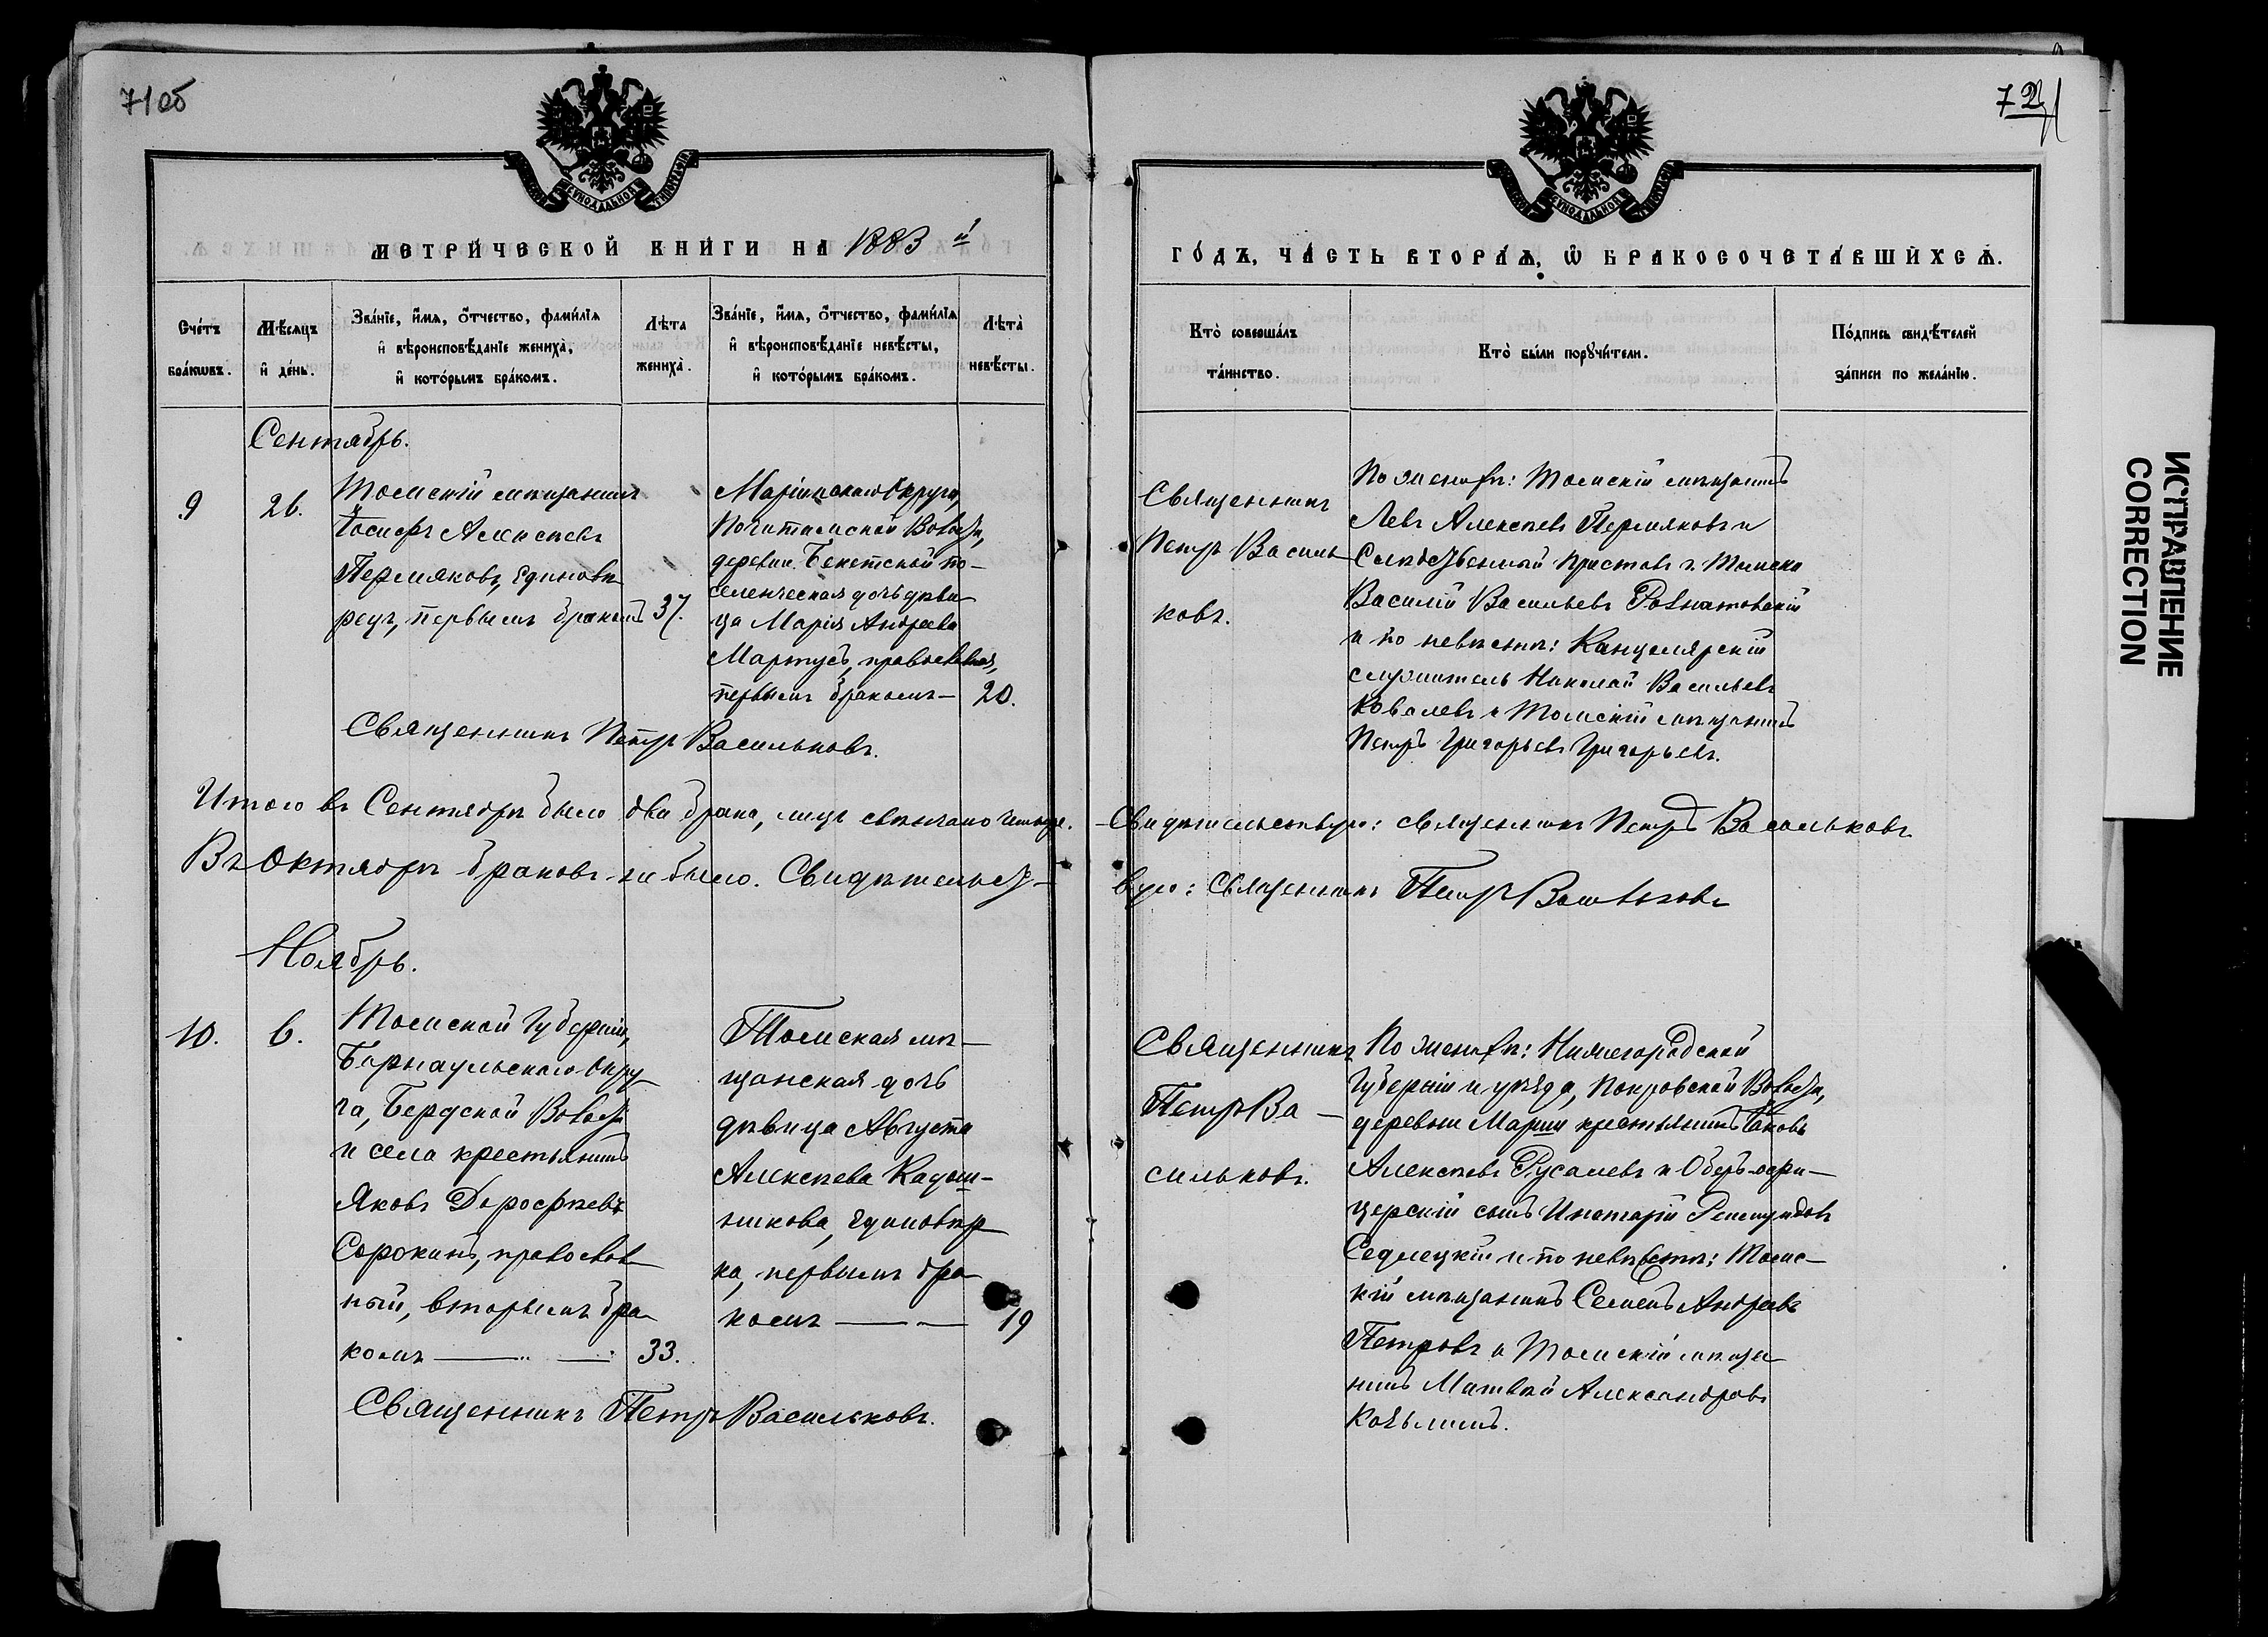 71 об
72
МЕТРИЧЕСКОЙ КНИГИ НА 1883й
ГОДЪ, ЧАСТЬ ВТОРАЯ, Ѽ БРАКОСОЧЕТАВШИХСЯ.
Счетъ браковъ.
Мѣсяцъ и день.
Званіе, имя, отчество, фамилія
и вѣроисповѣданіе жениха,
и которымъ бракомъ.
Лѣта
жениха.
Званіе, имя, отчество, фамилія
и вѣроисповѣданіе невѣсты,
и которымъ бракомъ.
Лѣта
невѣсты.
Кто совершалъ
таинство.
Кто были поручители.
Подпись свидѣтелей
записи по желанію.
Сентябрь.
9
26.
Томскій мѣщанинъ
Іосифъ Алексѣевъ
Пермяковъ, единовѣ
рецъ, первымъ бракомъ
37.
Маріинскаго Округа,
Почитанской Волости,
деревни Бекетской по-
селенческая дочь дѣви
ца Марія Андреева
Мартусъ, православная,
первымъ бракомъ—
20.
Священникъ
Петръ Василь
ковъ.
По женихѣ: Томскій мѣщанинъ
Левъ Алексѣевъ Пермяковъ и
Слѣдственный Приставъ г. Томска
Василій Васильевъ
и по невѣстѣ: Канцелярскій
служитель Николай Васильевъ
Ковалевъ и Томскій мѣщанинъ
Петръ Григорьевъ Григорьевъ.
Священникъ Петръ Васильковъ.
Итого въ Сентябрѣ было два брака, лицъ свѣнчано четыре. Свидѣтельствую: священникъ Петръ Васильковъ
Въ Октябрѣ браковъ не было. Свидѣтельст-
вую: Священникъ Петръ Васильковъ
Ноябрь.
10.
6.
Томской Губерніи,
Барнаульскаго Окру
га, Бердской Волости
и села крестьянинъ
Яковъ Дорофѣевъ
Сорокинъ, православ
ный, вторымъ бра
комъ —— —
33.
Томская мѣ—
щанская дочь
дѣвица Августа
Алексѣева Кадош-
никова, единовѣр
ка, первымъ бра
комъ —— —
19
Священникъ
Петръ Ва—
сильковъ.
По женихѣ: Нижегородской
Губерніи и уѣзда, Покровской Волости,
деревни крестьянинъ Іаковъ
Алексѣевъ Русалевъ и Оберъ-офи—
церскій сынъ
Седлецкій и по невѣстѣ: Томс—
кій мѣщанинъ Семенъ Андреевъ
Петровъ и Томскій мѣща
нинъ Матвѣй Александровъ
Священникъ Петръ Васильковъ.
ИСПРАВЛЕНИЕ
CORRECTION